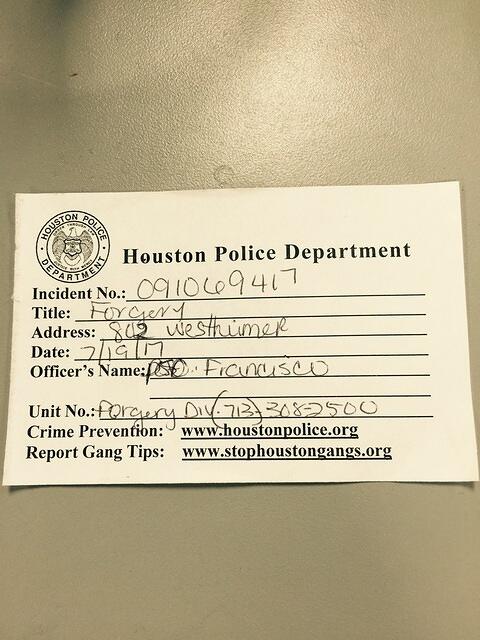 HOUSTON POLICE
DEPARTMENT
Houston Police Department
Incident No.: 091069417
Title: Forgery
Address: 802 Westhimer
Date: 7/19/17
Officer's Name: Francisco
Unit No.: Forgery Div. (713)-308-2500
Crime Prevention: www.houstonpolice.org
Report Gang Tips: www.stophoustongangs.org